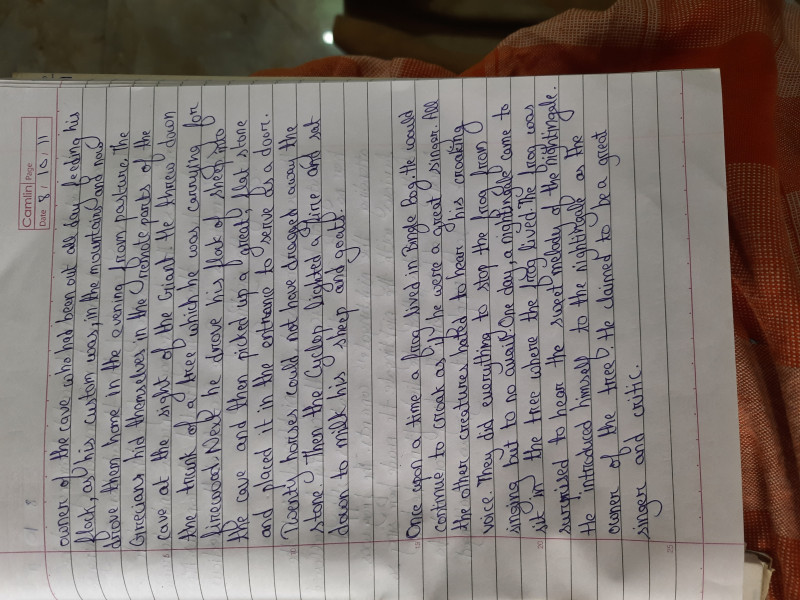 Camlin Page
Date 8/10/11
owner of the cave who had been out all day feeding his
flock, as his custom was, in the mountains and now
drove them home in the evening from pasture. The
Grrecians hid themselves in the remote parts of the
cave at the sight of the Giant. He threw down
the trunk of a tree which he was carrying for
firewood. Next he drove his flock of sheep into
the cave and then picked up a great, flat stone
and placed it in the entrance to serve as a door.
Twenty horses could not have dragged away the
stone. Then the Cyclop lighted a fire and sat
down to milk his sheep and goats.
Once upon a time a frog lived in Bingle Bog. He would
continue to croak as if he were a great singer. All
the other creatures hated to hear his croaking
voice. They did everything to stop the frog from
singing but to no avail. One day, a nightingale came to
sit in the tree where the frog lived. The frog was
surprised to hear the sweet melody of the nightingale.
He introduced himself to the nightingale as the
owner of the tree. He claimed to be a great
singer and critic.